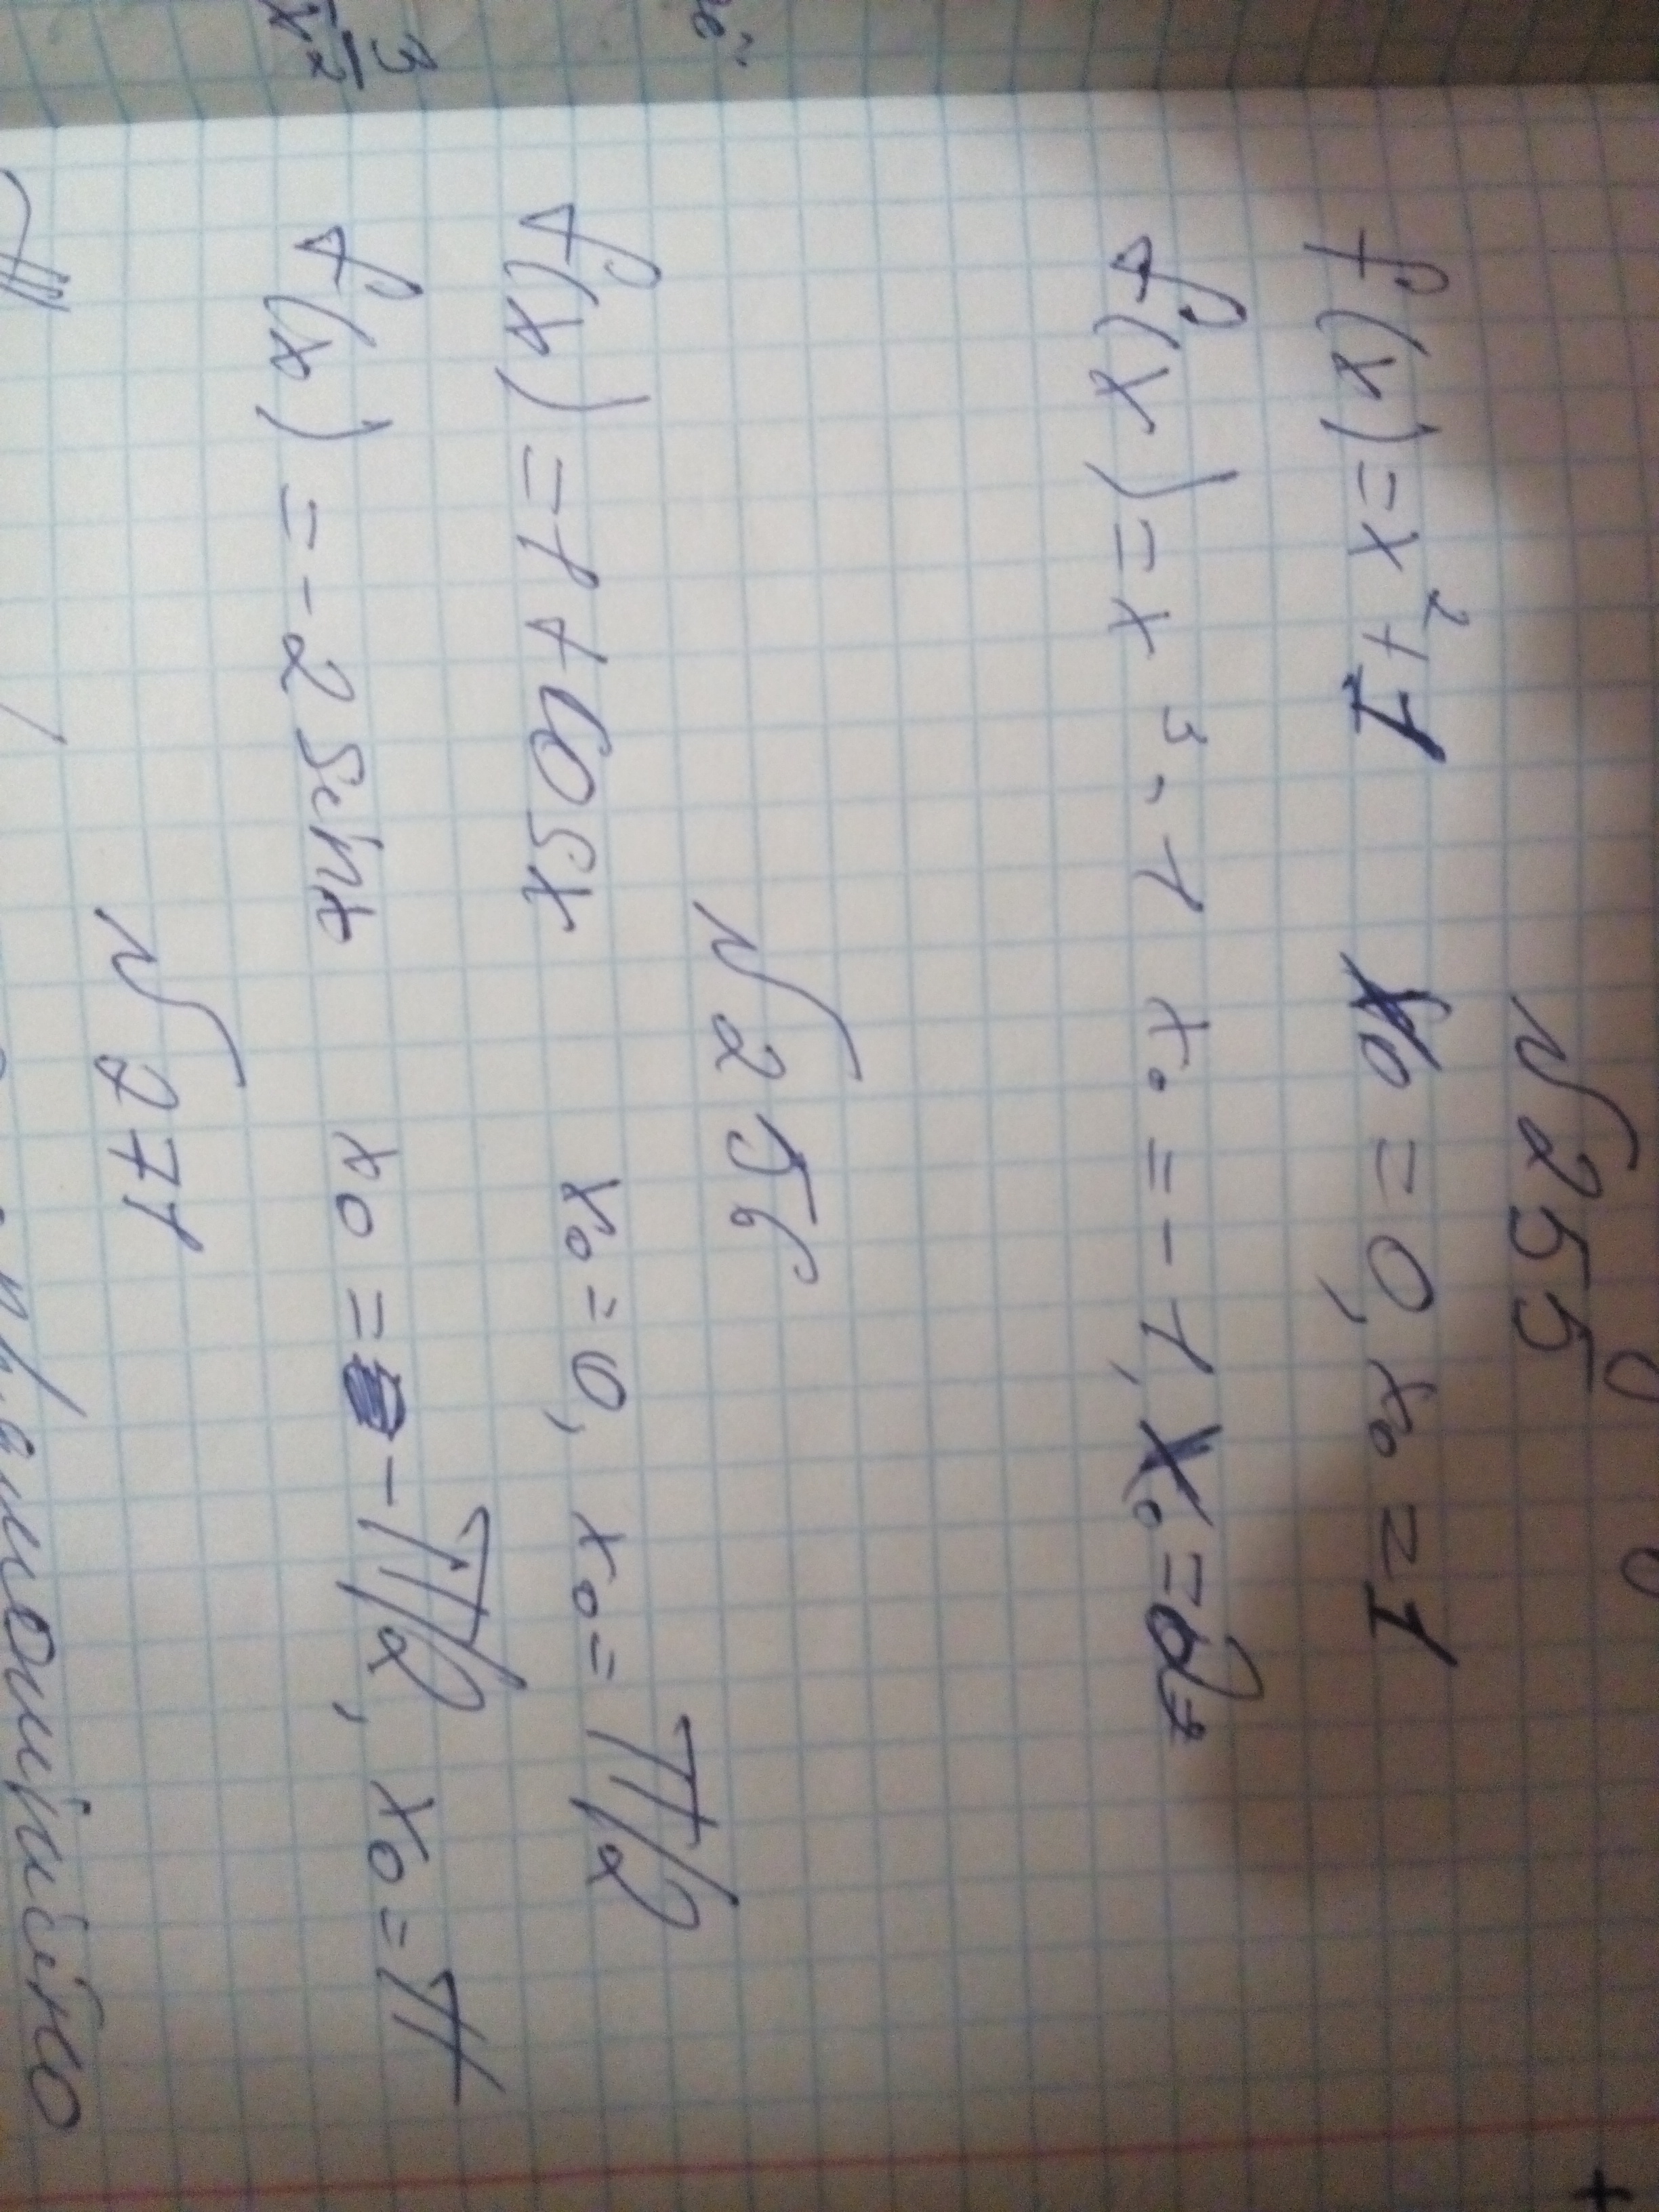 N 255
f(x)=x²+1 x₀=0, x₀=1
f(x)=x³-1 x₀=-1, x₀=2
N 256
f(x)=1+cosx x₀=0, x₀=π/2
f(x)=-2sinx x₀=-π/2, x₀=π
N 271